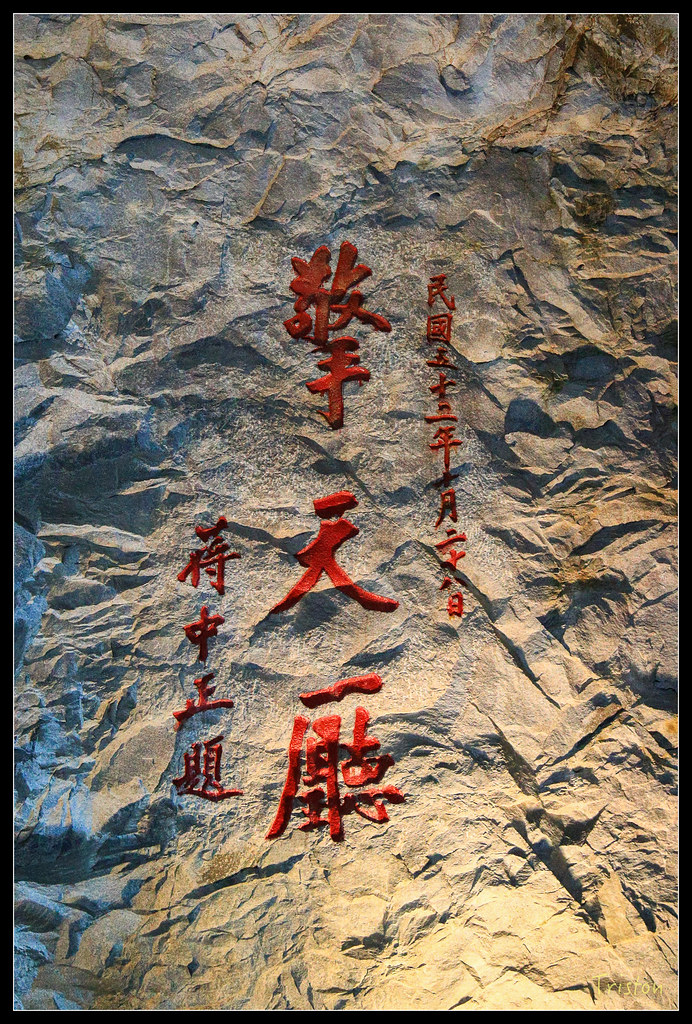 民國五十二年十月二十八日
擎天廳
蔣中正題
Triston